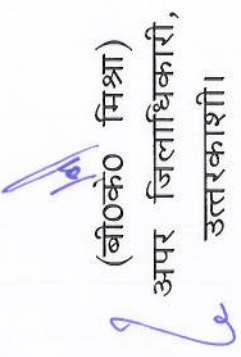 (बी0के0 मिश्रा)
अपर जिलाधिकारी,
उत्तरकाशी।